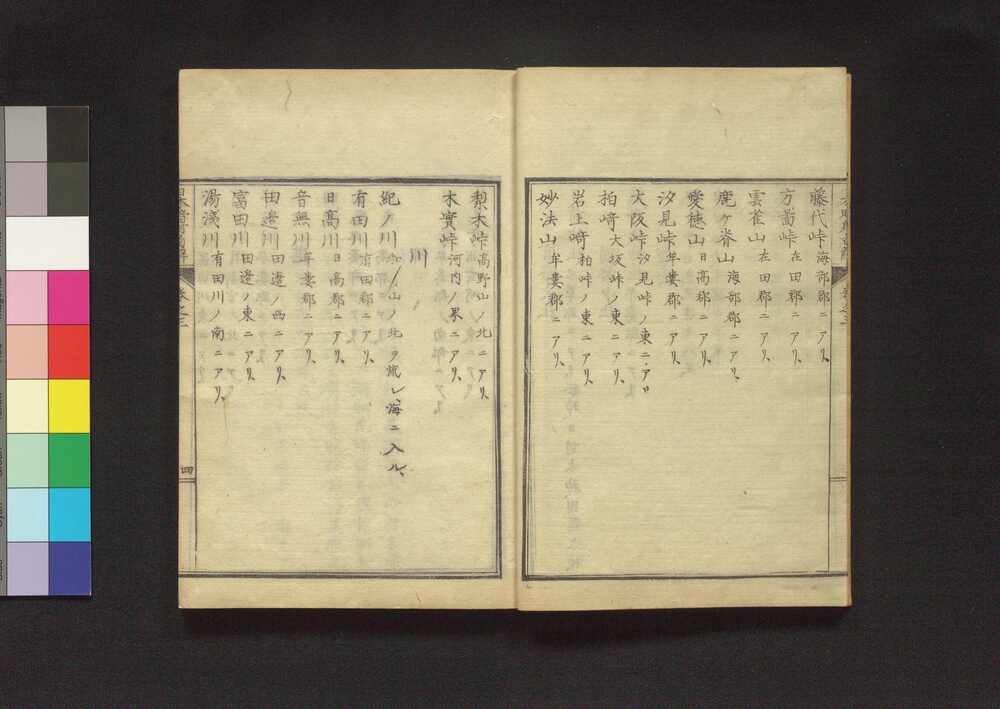 藤代峠 海部郡ニアリ、
方尉峠 在田郡ニアリ、
雲雀山 在田郡ニアリ、
鹿ヶ脊山 海部郡ニアリ、
愛徳山 日高郡ニアリ、
汐見峠 牟婁郡ニアリ、
大阪峠 汐見峠ノ東ニアリ
拍﨑 大坂峠ノ東ニアリ、
岩上﨑 拍峠ノ東ニアリ、
妙法山 牟婁郡ニアリ、
梨木峠 高野山ノ北ニアリ、
木實峠 河内ノ界ニアリ、
川
紀ノ川 ノ山ノ北ヲ流レ、海ニ入ル、
有田川 有田郡ニアリ、
日高川 日高郡ニアリ、
音無川 牟婁郡ニアリ、
田邉川 田邉ノ西ニアリ、
富田川 田邉ノ東ニアリ、
湯淺川 有田川ノ南ニアリ、
四